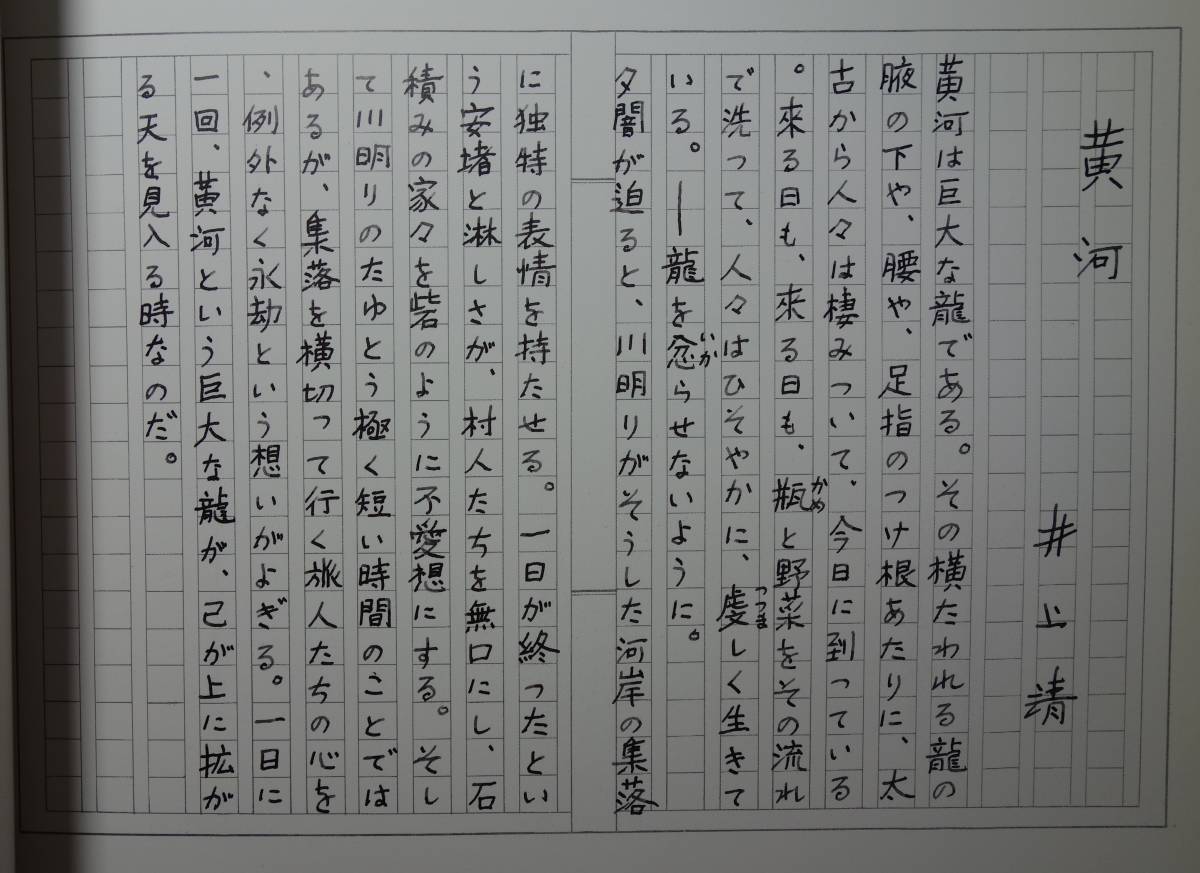 黄河
井上靖
黄河は巨大な龍である。その横たわれる龍の
腋の下や、腰や、足指のつけ根あたりに、太
古から人々は棲みついて、今日に到っている
。來る日も、来る日も、瓶と野菜をその流れ
かめ
で洗って、人々はひそやかに、虔しく生きて
つつま
いる。――龍を忿らせないように。
いか
夕闇が迫ると、川明りがそうした河岸の集落
に独特の表情を持たせる。一日が終ったとい
う安堵と淋しさが、村人たちを無口にし、石
積みの家々を砦のように不愛想にする。そし
て川明りのたゆとう極く短い時間のことでは
あるが、集落を横切って行く旅人たちの心を
、例外なく永劫という想いがよぎる。一日に
一回、黄河という巨大な龍が、己が上に拡が
る天を見入る時なのだ。